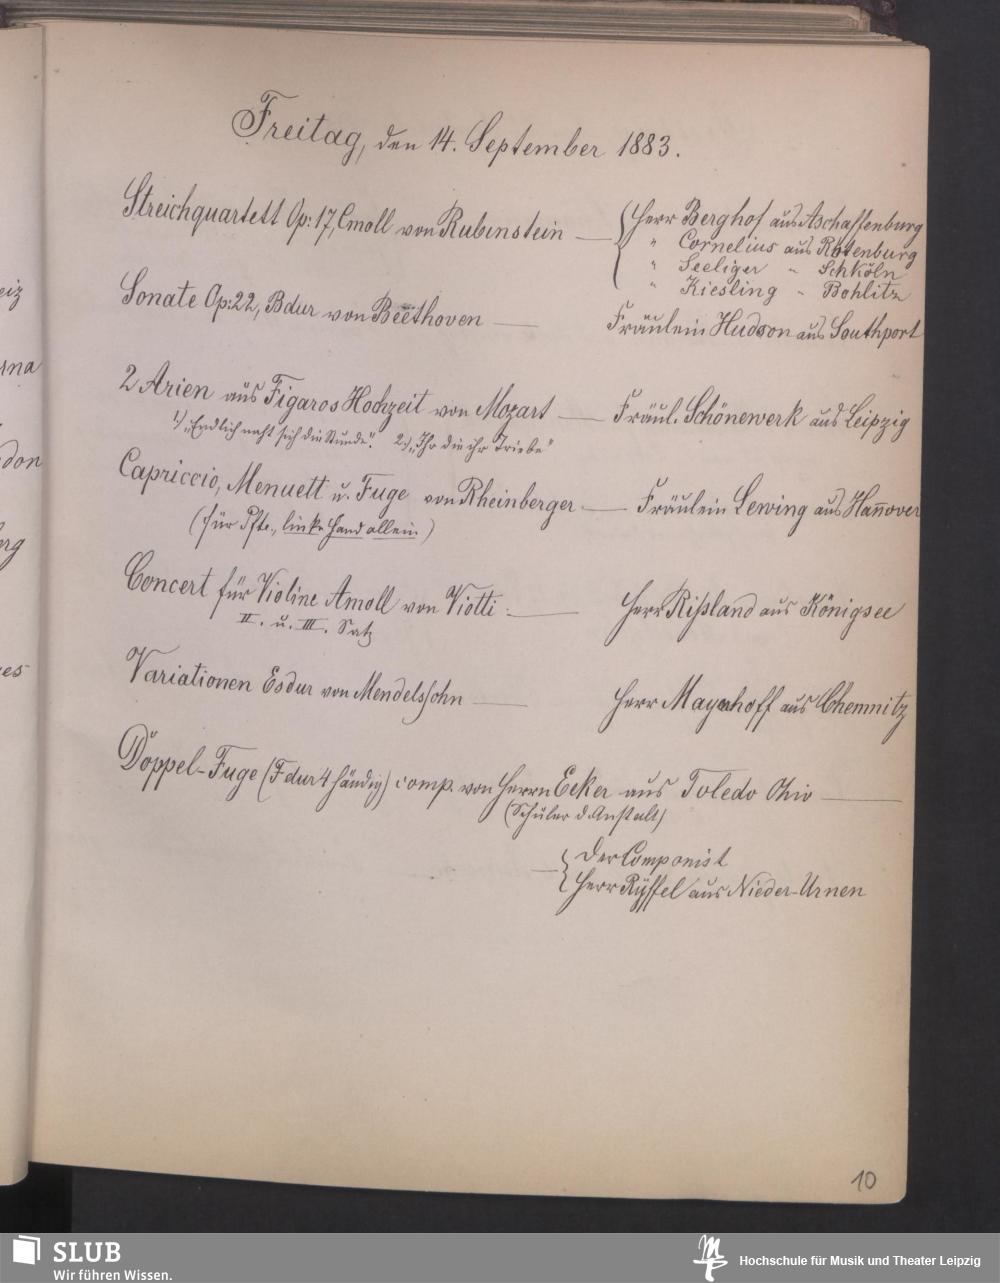 Freitag, den 14. September 1883.
Streichquartett Op: 17, Cmoll von Rubinstein — Herr Berghof aus Aschaffenburg
" Cornelius aus Rotenburg
" Seeliger " Schköln
" Kiesling " Bohlitz
Sonate Op: 22, Bdur von Beethoven — Fräulein Hudson aus Southport
2 Arien aus Figaros Hochzeit von Mozart — Fräul. Schönewerk aus Leipzig
1) „Endlich naht sich die Stunde". 2.) „Ihr die ihr Triebe"
Capriccio, Menuett u. Fuge von Rheinberger — Fräulein Lewing aus Hannover
(für Pfte., linke Hand allein.)
Concert für Violine Amoll von Viotti — Herr Rißland aus Königsee
II. u. III. Satz
Variationen Esdur von Mendelssohn — Herr Mayerhoff aus Chemnitz
Doppel-Fuge (Fdur 4 händig) comp. von Herrn Ecker aus Toledo Ohio —
(Schüler d. Anstalt)
— Der Componist
Herr Rÿffel aus Nieder-Urnen
10
eiz
rna
don
rg
es
SLUB
Wir führen Wissen.
Hochschule für Musik und Theater Leipzig